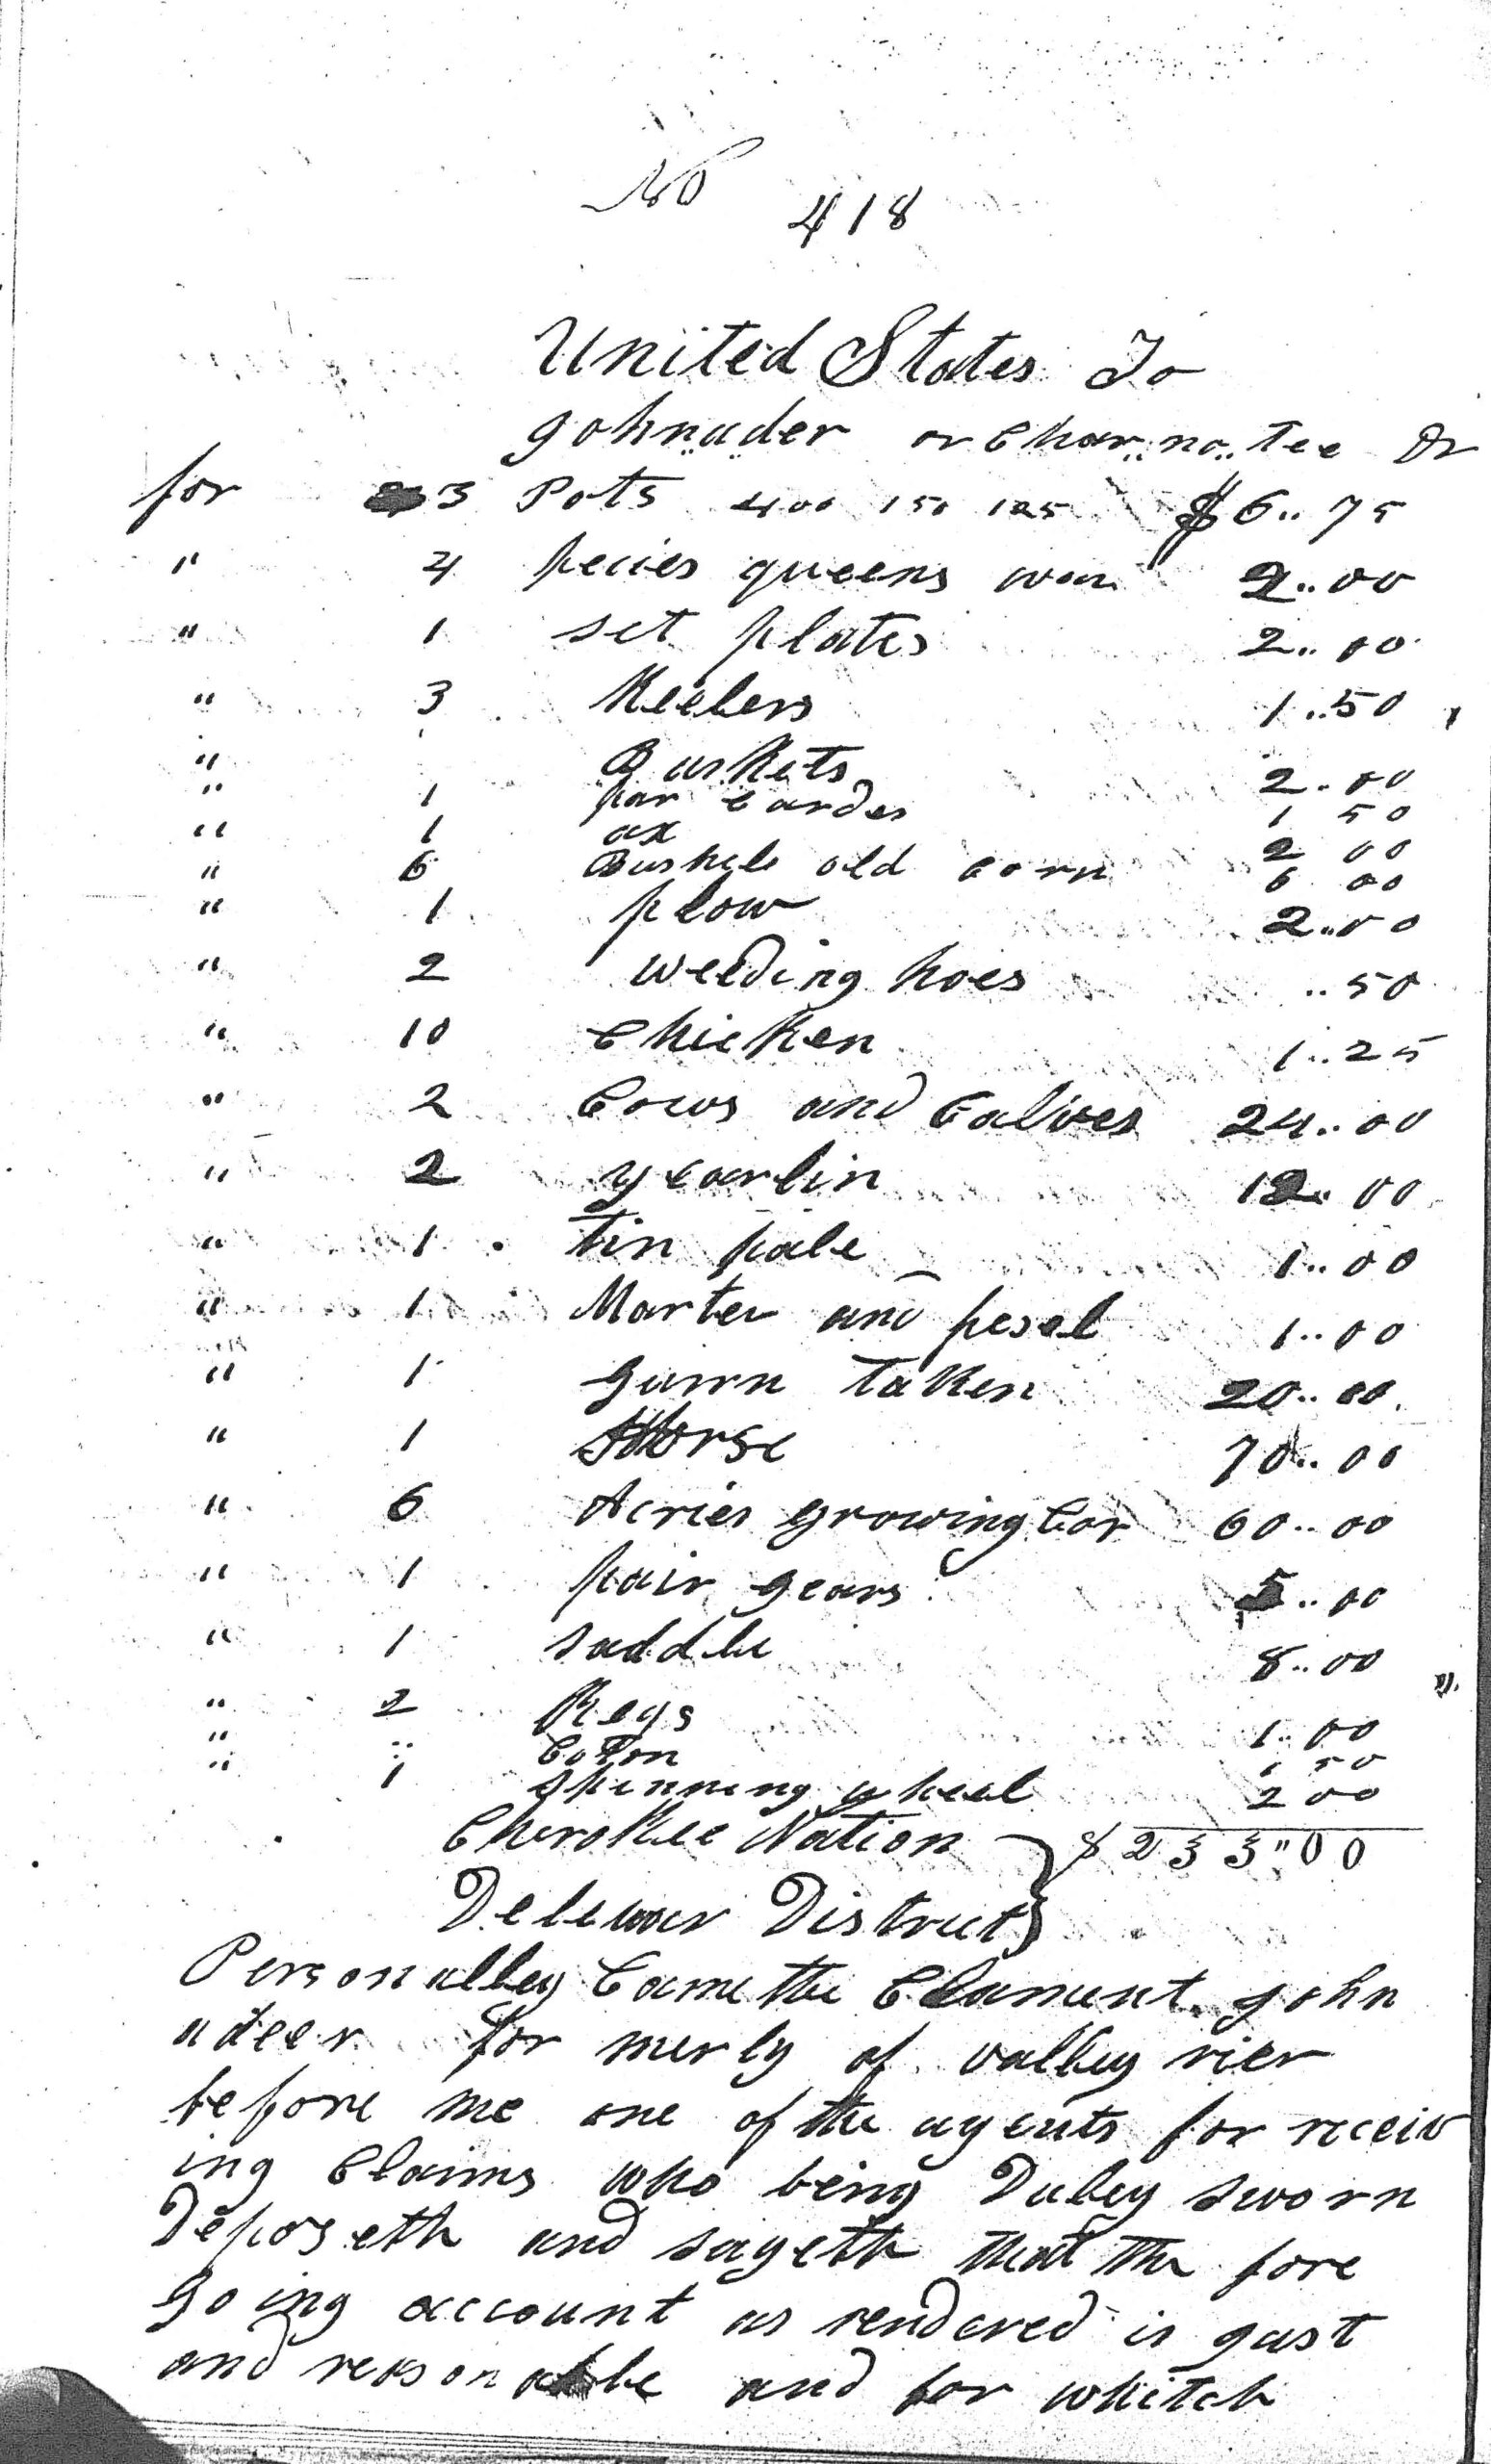 No 418
United States To
Johnuder or Char..no..tee Dr
for 3 Pots 400 150 125 $6..75
" 4 pecies queens war 2..00
" 1 set plates 2..00
" 3 Keelers 1..50
" Baskets 2..00
" 1 par Cardes 1 50
" 1 ax 2 00
" 6 Bushels old corn 6 00
" 1 plow 2..00
" 2 weeding hoes ..50
" 10 Chicken 1..25
" 2 Cows and Calves 24..00
" 2 yearlin 12..00
" 1 tin pale 1..00
" 1 Marter and pesel 1..00
" 1 gunn taken 20..00
" 1 Horse 70..00
" 6 Acries growing Cor 60..00
" 1 pair gears 5..00
" 1 saddle 8..00
" 2 Kegs 1..00
" " Coton 1 50
" 1 spinning wheel 2 00
Cherokee Nation } $233"00
Delewar District }
Personalley Came the Clament John
adeer for merly of valley rier
before me one of the agents for receiv
ing Claims who being Duley sworn
Deposeth and sayeth that the fore
going account as rendered is gust
and reasonable and for whitch